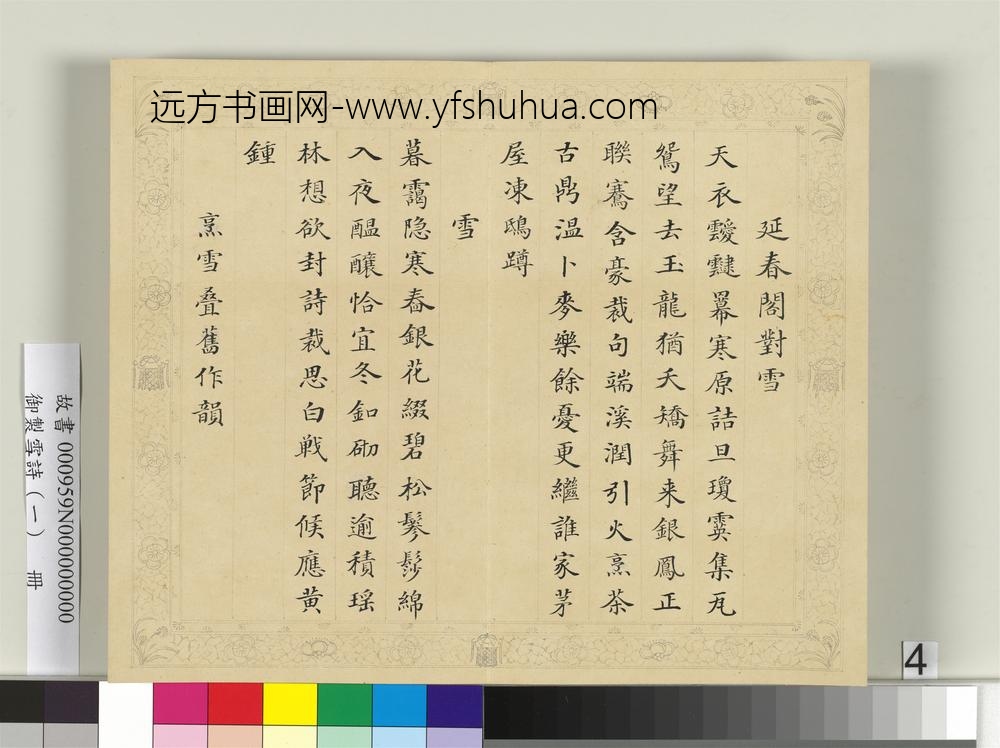 远方书画网-www.yfshuhua.com
延春閣對雪
天衣靉靆羃寒原詰旦瓊霙集瓦
鴛望去玉龍猶夭矯舞来銀鳳正
聯騫含豪裁句端溪潤引火烹茶
古鼎温卜麥樂餘憂更繼誰家茅
屋凍鴟蹲
雪
暮靄隐寒舂銀花綴碧松鬖髿綿
入夜醖釀恰宜冬釦砌聴逾積瑶
林想欲封詩裁思白戦節候應黄
鍾
烹雪叠舊作韻
故書 000959N000000000
御製雪詩(一) 冊
4